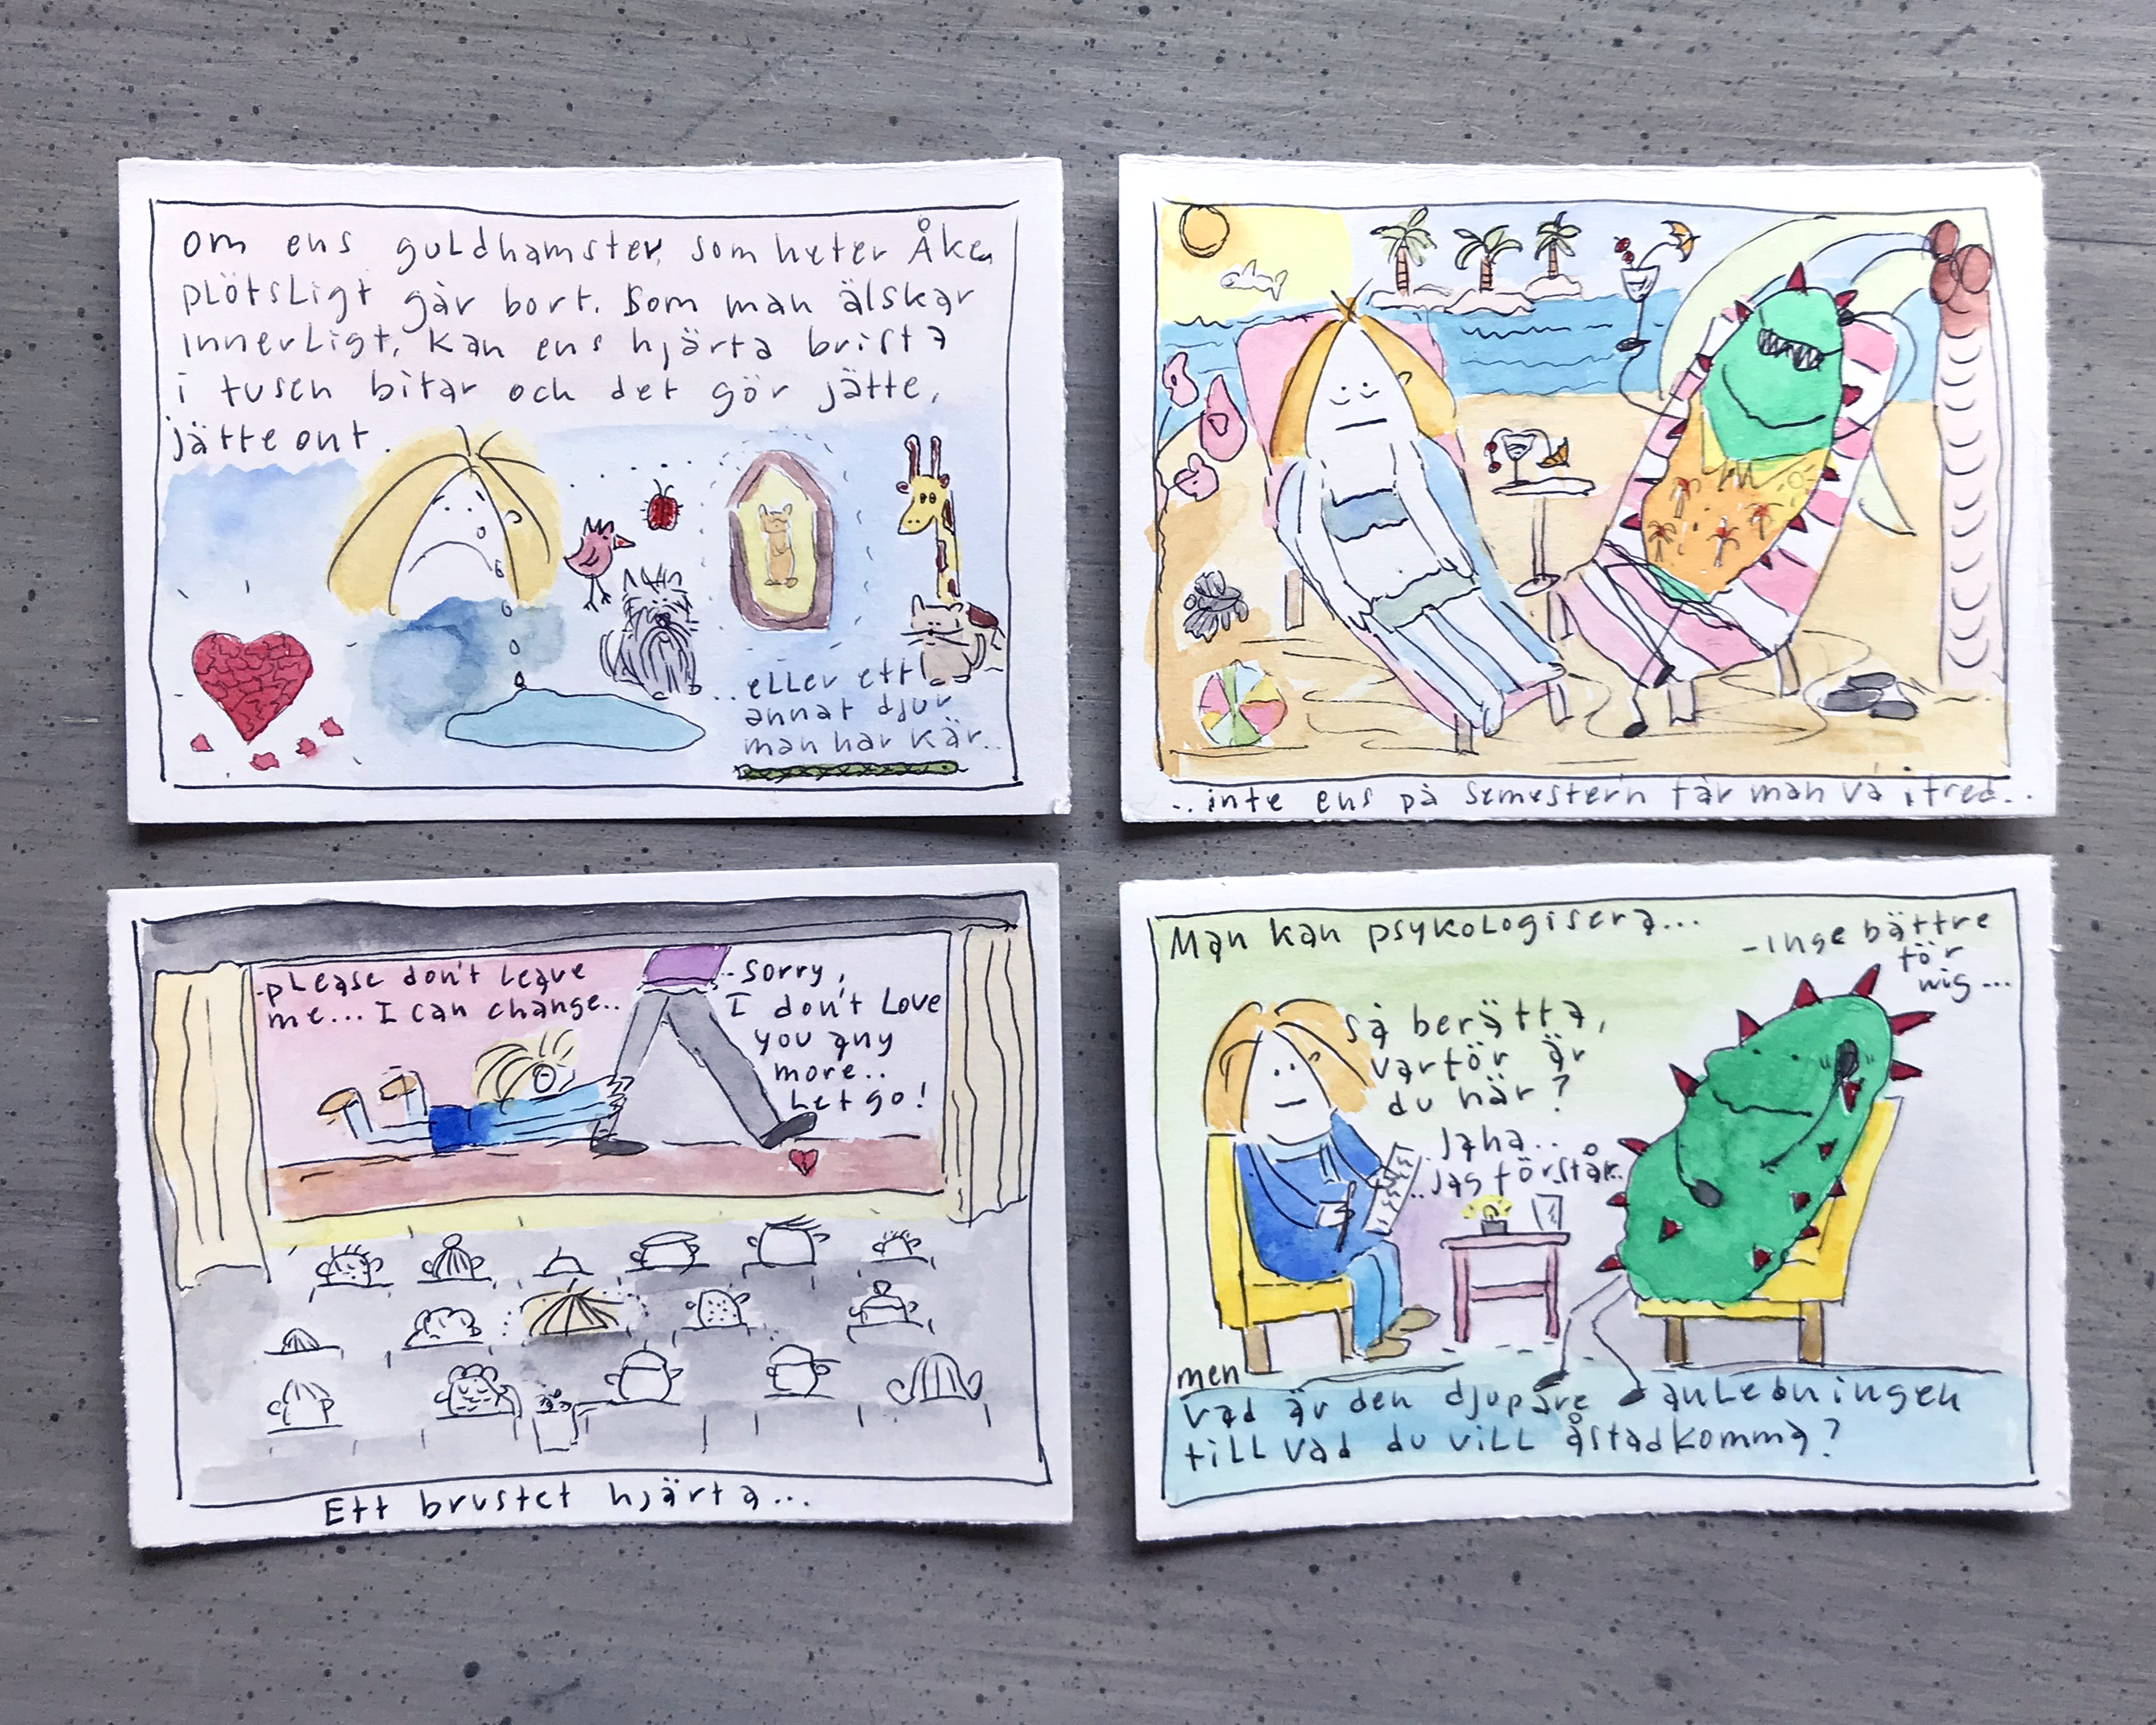 om ens guldhamster, som heter Åke,
plötsligt går bort. Som man älskar
innerligt, kan ens hjärta brista
i tusen bitar och det gör jätte,
jätte ont.
..eller ett
annat djur
man har kär..
..inte ens på semestern får man va i fred..
-please don't leave
me... I can change..
-Sorry,
I don't love
you any
more..
Let go!
Ett brustet hjärta...
Man kan psykologisera...
-inge bättre
för
mig...
Så berätta,
varför är
du här?
Jaha..
..jag förstår..
men
vad är den djupare anledningen
till vad du vill åstadkomma?